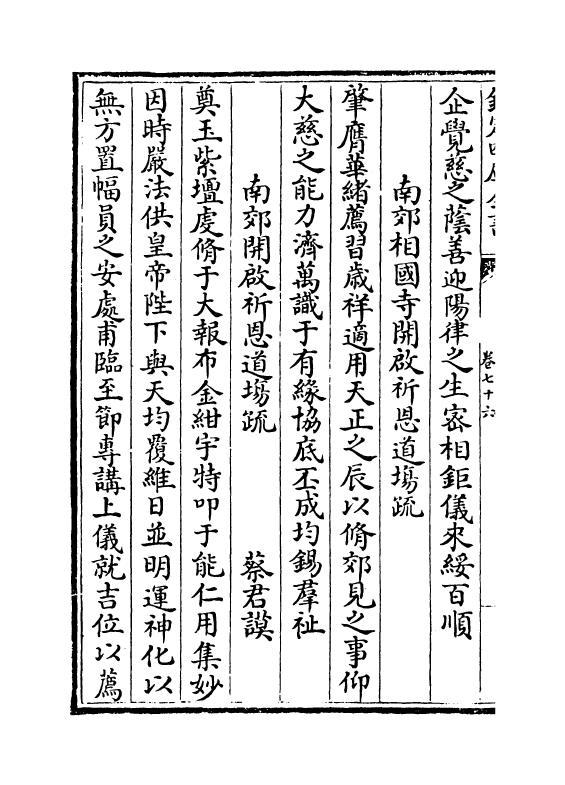 卷七十六
企覺慈之蔭善迎陽律之生宻相鉅儀來綏百順
南郊相國寺開啟祈恩道塲疏
肇膺華緒薦習歳祥適用天正之辰以脩郊見之事仰
大慈之能力濟萬識于有緣協底丕成均錫羣祉
南郊開啟祈恩道塲疏　蔡君謨
奠玉紫壇䖍脩于大報布金紺宇特叩于能仁用集妙
因時嚴法供皇帝陛下與天均覆維日並明運神化以
無方置幅員之安處甫臨至節専講上儀就吉位以薦